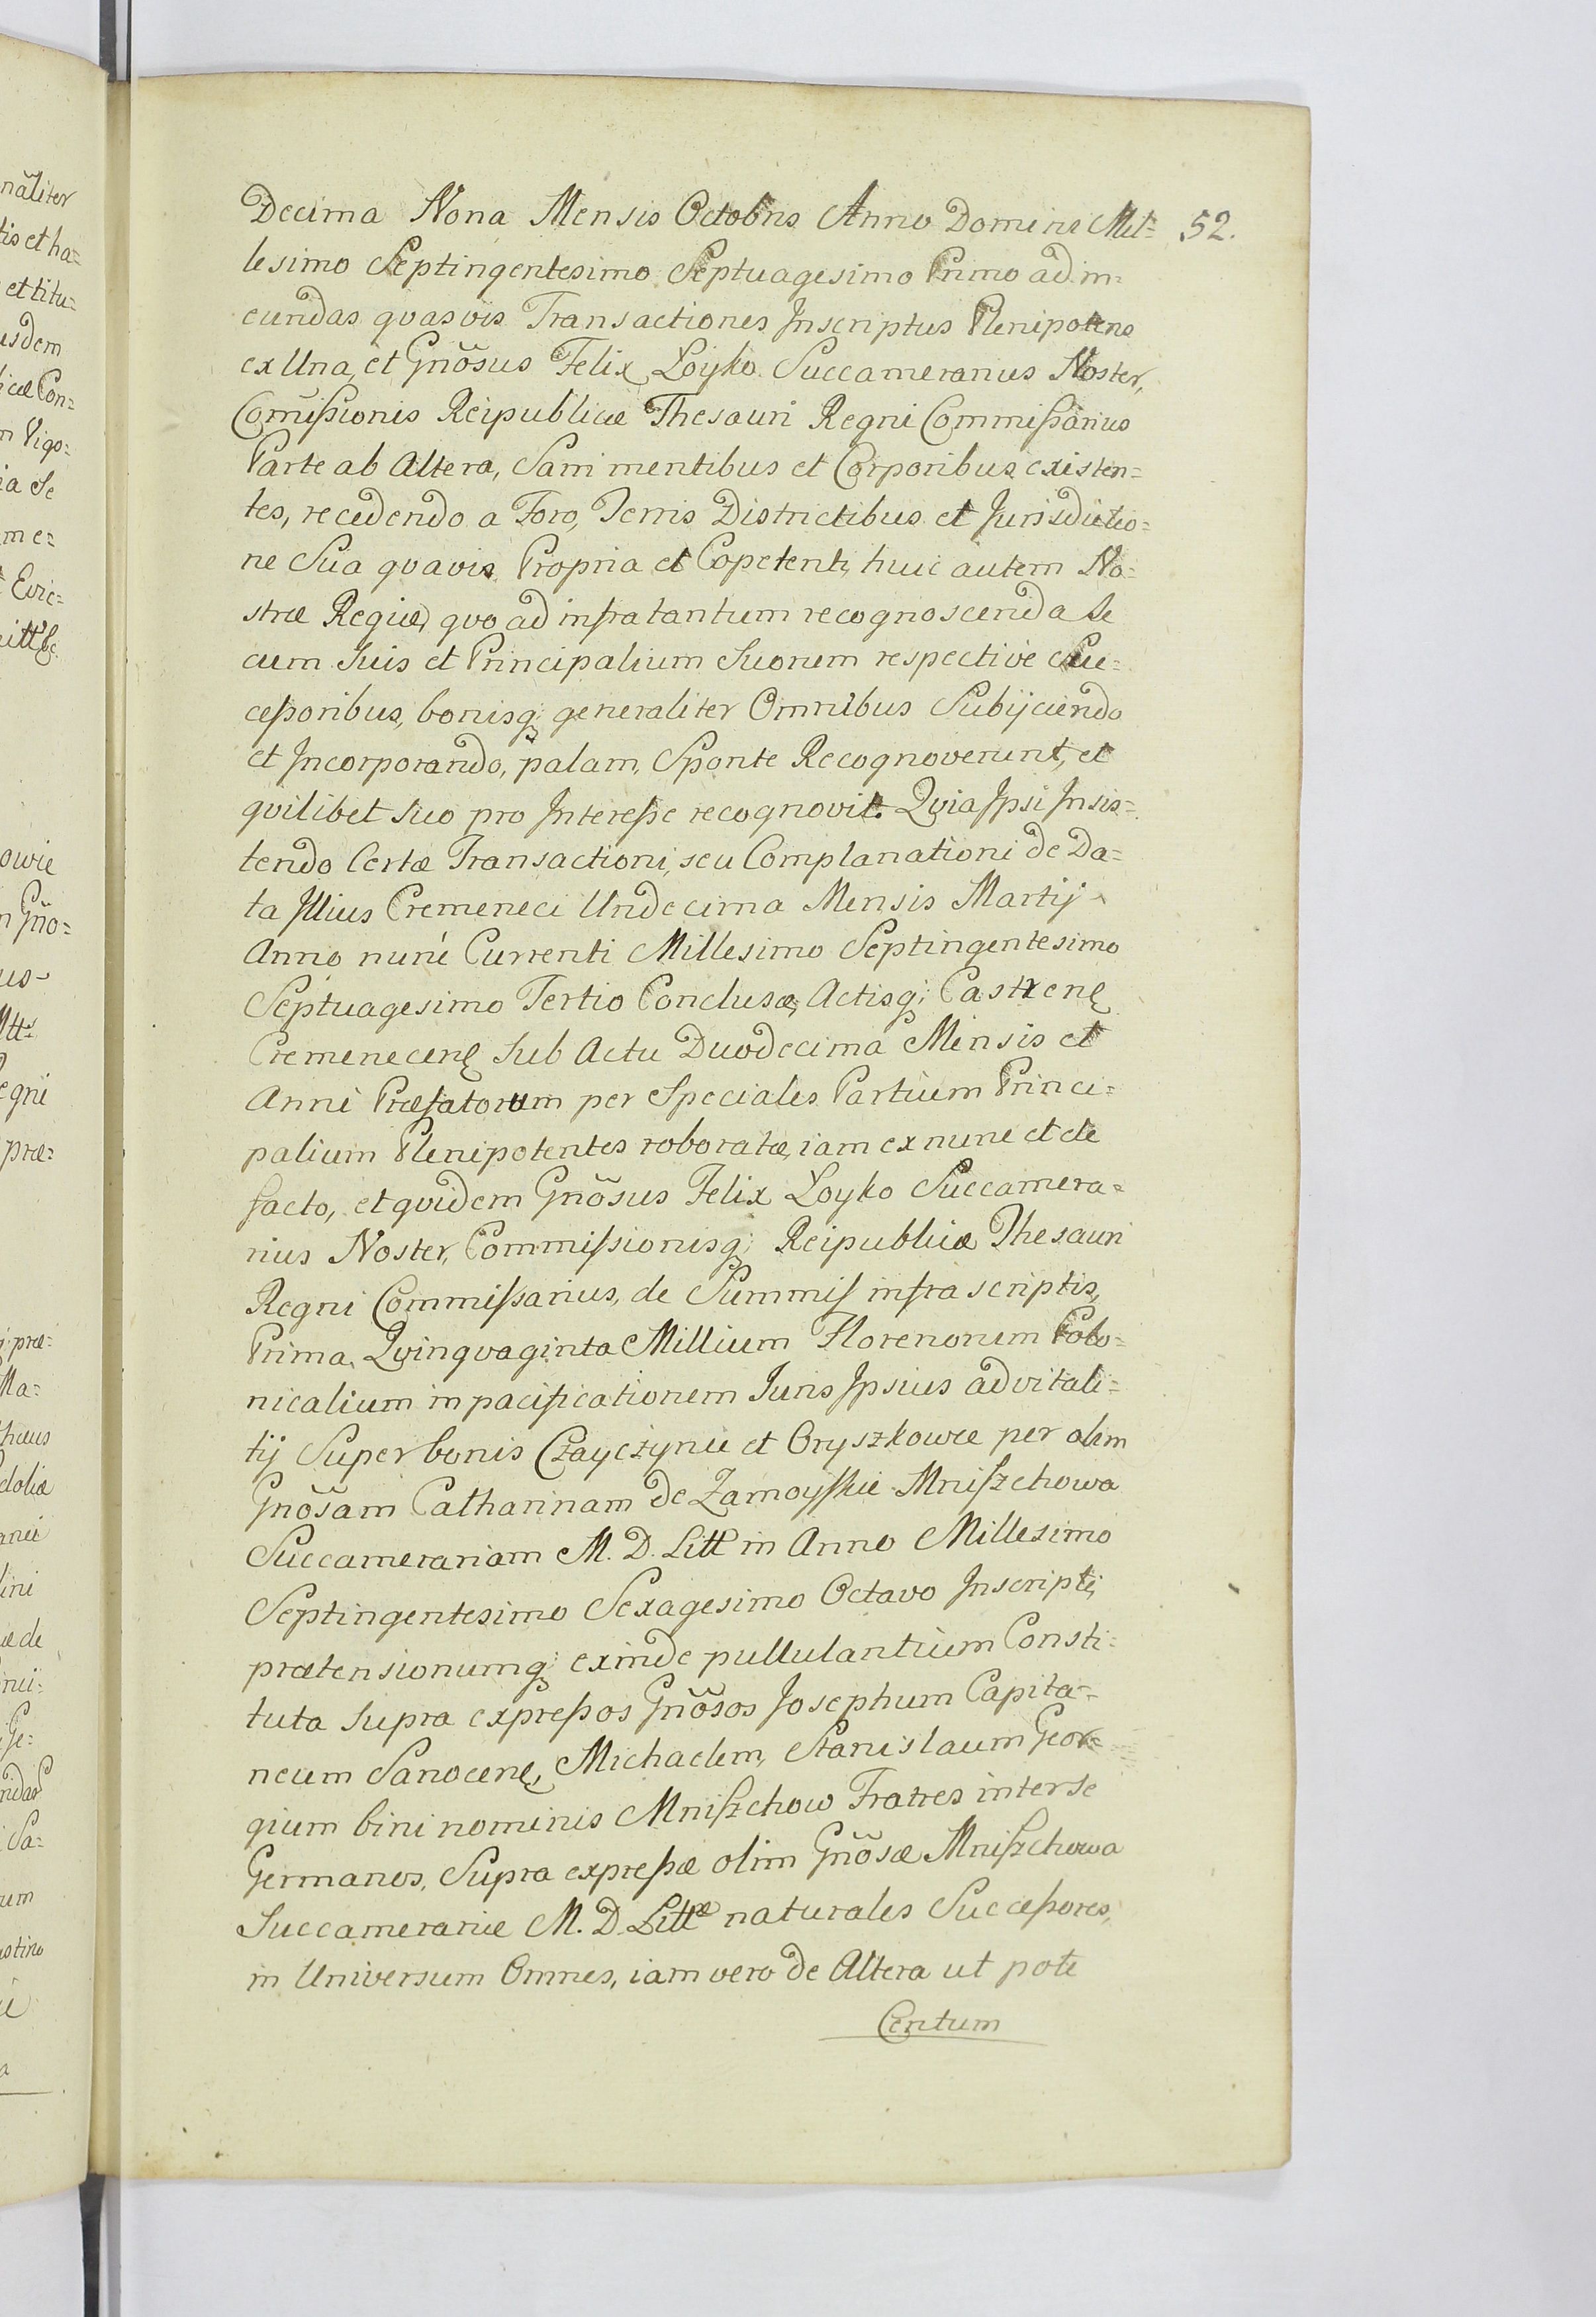 Decima Nona Mensis Octobris Anno Domini Mil= 52.
lesimo Septingentesimo Septuagesimo Primo ad in=
eundas qvasvis Transactiones Inscriptus Plenipotens
ex Una, et Gnõsus Felix Łoyko Succamerarius Noster,
Com̃issionis Reipublicæ Thesauri Regni Commissarius
Parte ab Altera, Sani mentibus et Corporibus existen=
tes, recedendo a Foro, Terris Districtibus et Jurisdictio=
ne Sua qvavis Propria et Copetenti, huic autem No=
stræ Regiæ, qvo ad infra tantum recognoscenda Se
cum Suis et Principalium Suorum respective Suc=
cessoribus, bonisq; generaliter Omnibus Subijciendo
et Incorporando, palam, Sponte Recognoverunt, et
qvilibet Suo pro Interesse recognovit. Qvia Ipsi Insis=
tendo Certæ Transactioni, seu Complanationi de Da=
ta Illius Cremeneci Undecima Mensis Martij
Anno nunc Currenti Millesimo Septingentesimo
Septuagesimo Tertio Conclusæ, Actisq; Castrenę
Cremenecenę Sub Actu Duodecima Mensis et
Anni Præfatorum per Speciales Partium Princi=
palium Plenipotentes roboratæ, iam ex nunc et de
facto, et qvidem Gnõsus Felix Łoyko Succamera=
rius Noster, Commissionisq; Reipublicæ Thesauri
Regni Commissarius, de Summis infra scriptis,
Prima Qvinqvaginta Millium Florenorum Polo=
nicalium in pacificationem Juris Ipsius advitali=
tij Super bonis Czayczynce et Oryszkowce per olim
Gnõsam Catharinam de Zamoyskie Mniszchowa
Succamerariam M. D. Litt in Anno Millesimo
Septingentesimo Sexagesimo Octavo Inscripti,
prætensionumq; exinde pullulantium Consti=
tuta Supra expressos Gnõsos Josephum Capita=
neum Sanocenę, Michaelem, Stanislaum Geor=
gium bini nominis Mniszchow Fratres inter se
Germanos, Supra expressæ olim Gnõsæ Mniszchowa
Succamerariæ M. D. Littæ naturales Successores,
in Universum Omnes, iam vero de Altera ut pote
Centum